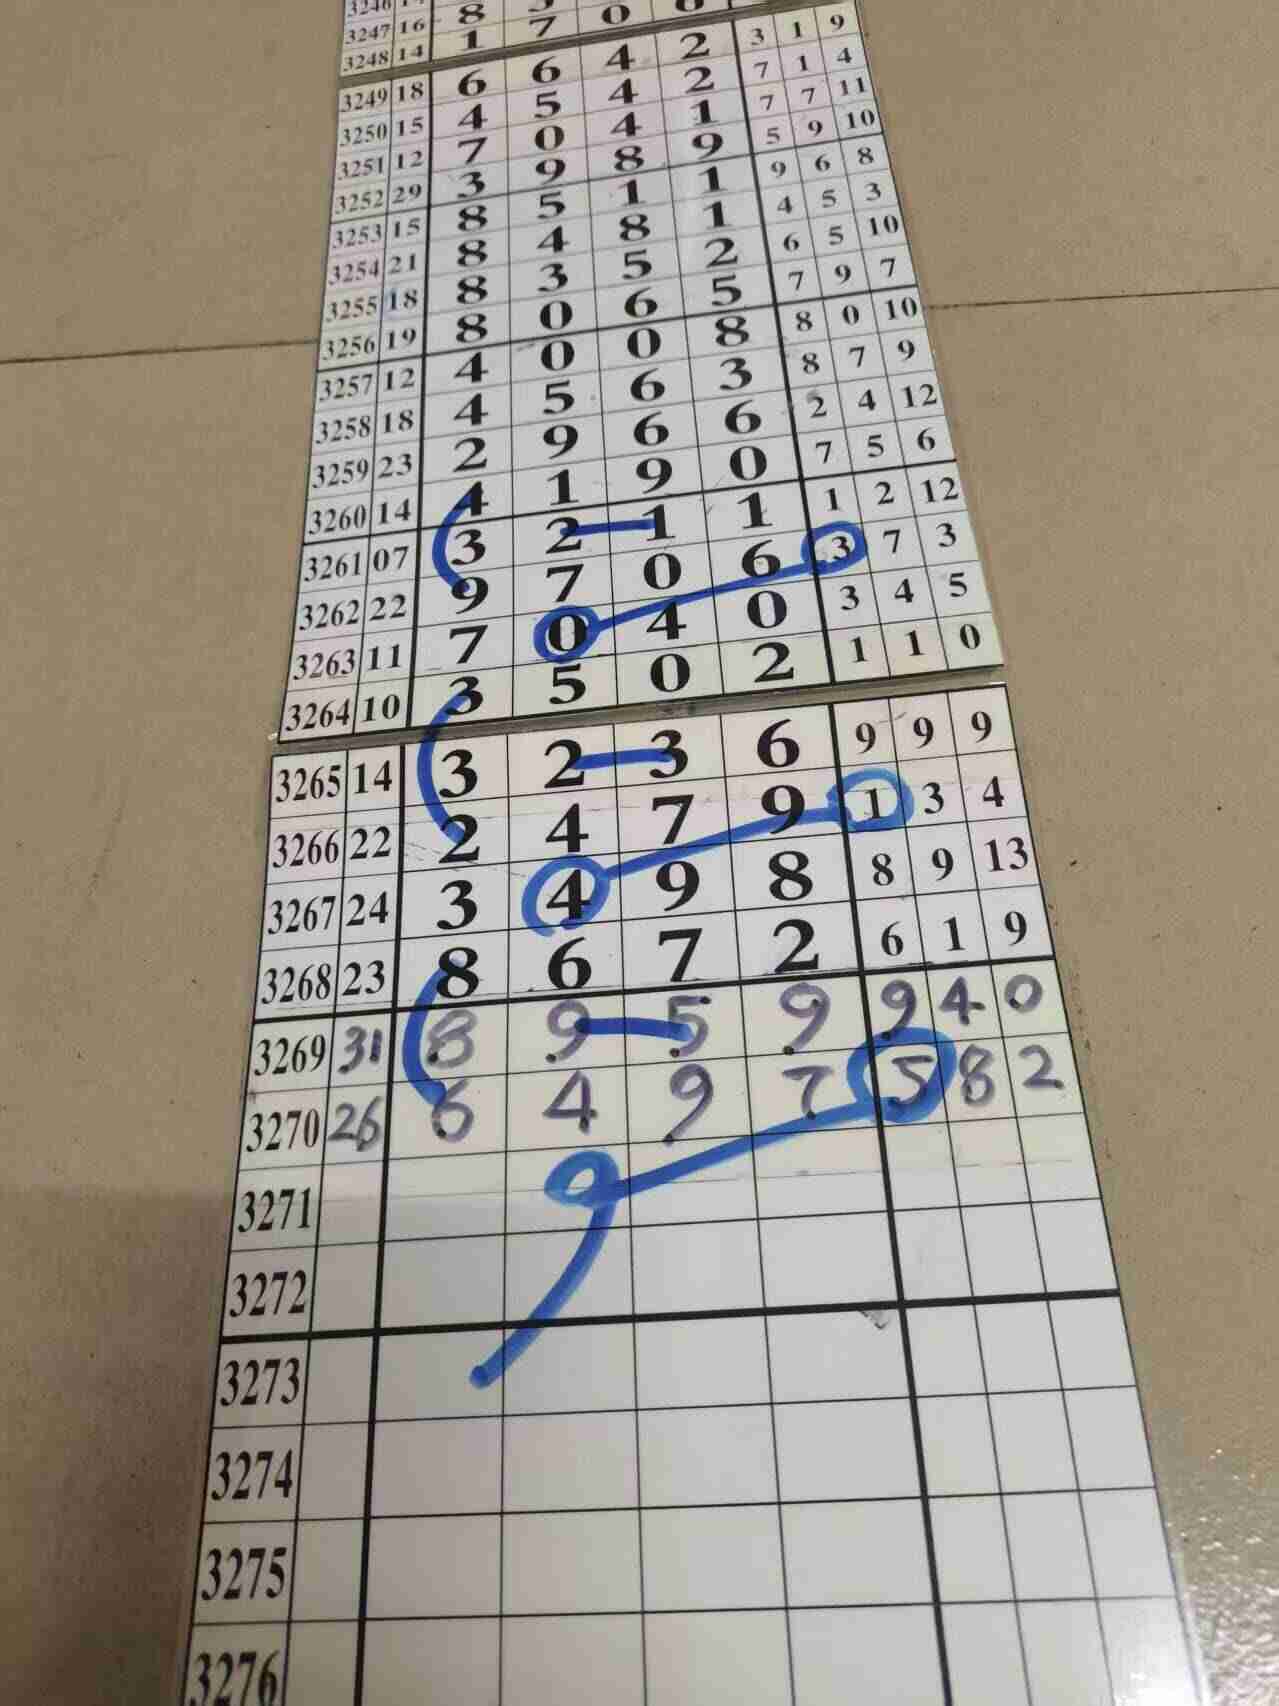 3247 16 8 7 0 0
3248 14 1 3 1 9
3249 18 6 6 4 2 7 1 4
3250 15 4 5 4 2 7 7 11
3251 12 7 0 4 1 5 9 10
3252 29 3 9 8 9 9 6 8
3253 15 8 5 1 1 4 5 3
3254 21 8 4 8 1 6 5 10
3255 18 8 3 5 2 7 9 7
3256 19 8 0 6 5 8 0 10
3257 12 4 0 0 8 8 7 9
3258 18 4 5 6 3 2 4 12
3259 23 2 9 6 6 7 5 6
3260 14 4 1 9 0 1 2 12
3261 07 3 2 1 1 3 7 3
3262 22 9 7 0 6 3 4 5
3263 11 7 0 4 0 1 1 0
3264 10 3 5 0 2
3265 14 3 2 3 6 9 9 9
3266 22 2 4 7 9 1 3 4
3267 24 3 4 9 8 8 9 13
3268 23 8 6 7 2 6 1 9
3269 31 8 9 5 9 9 4 0
3270 26 6 4 9 7 5 8 2
3271 9
3272
3273
3274
3275
3276